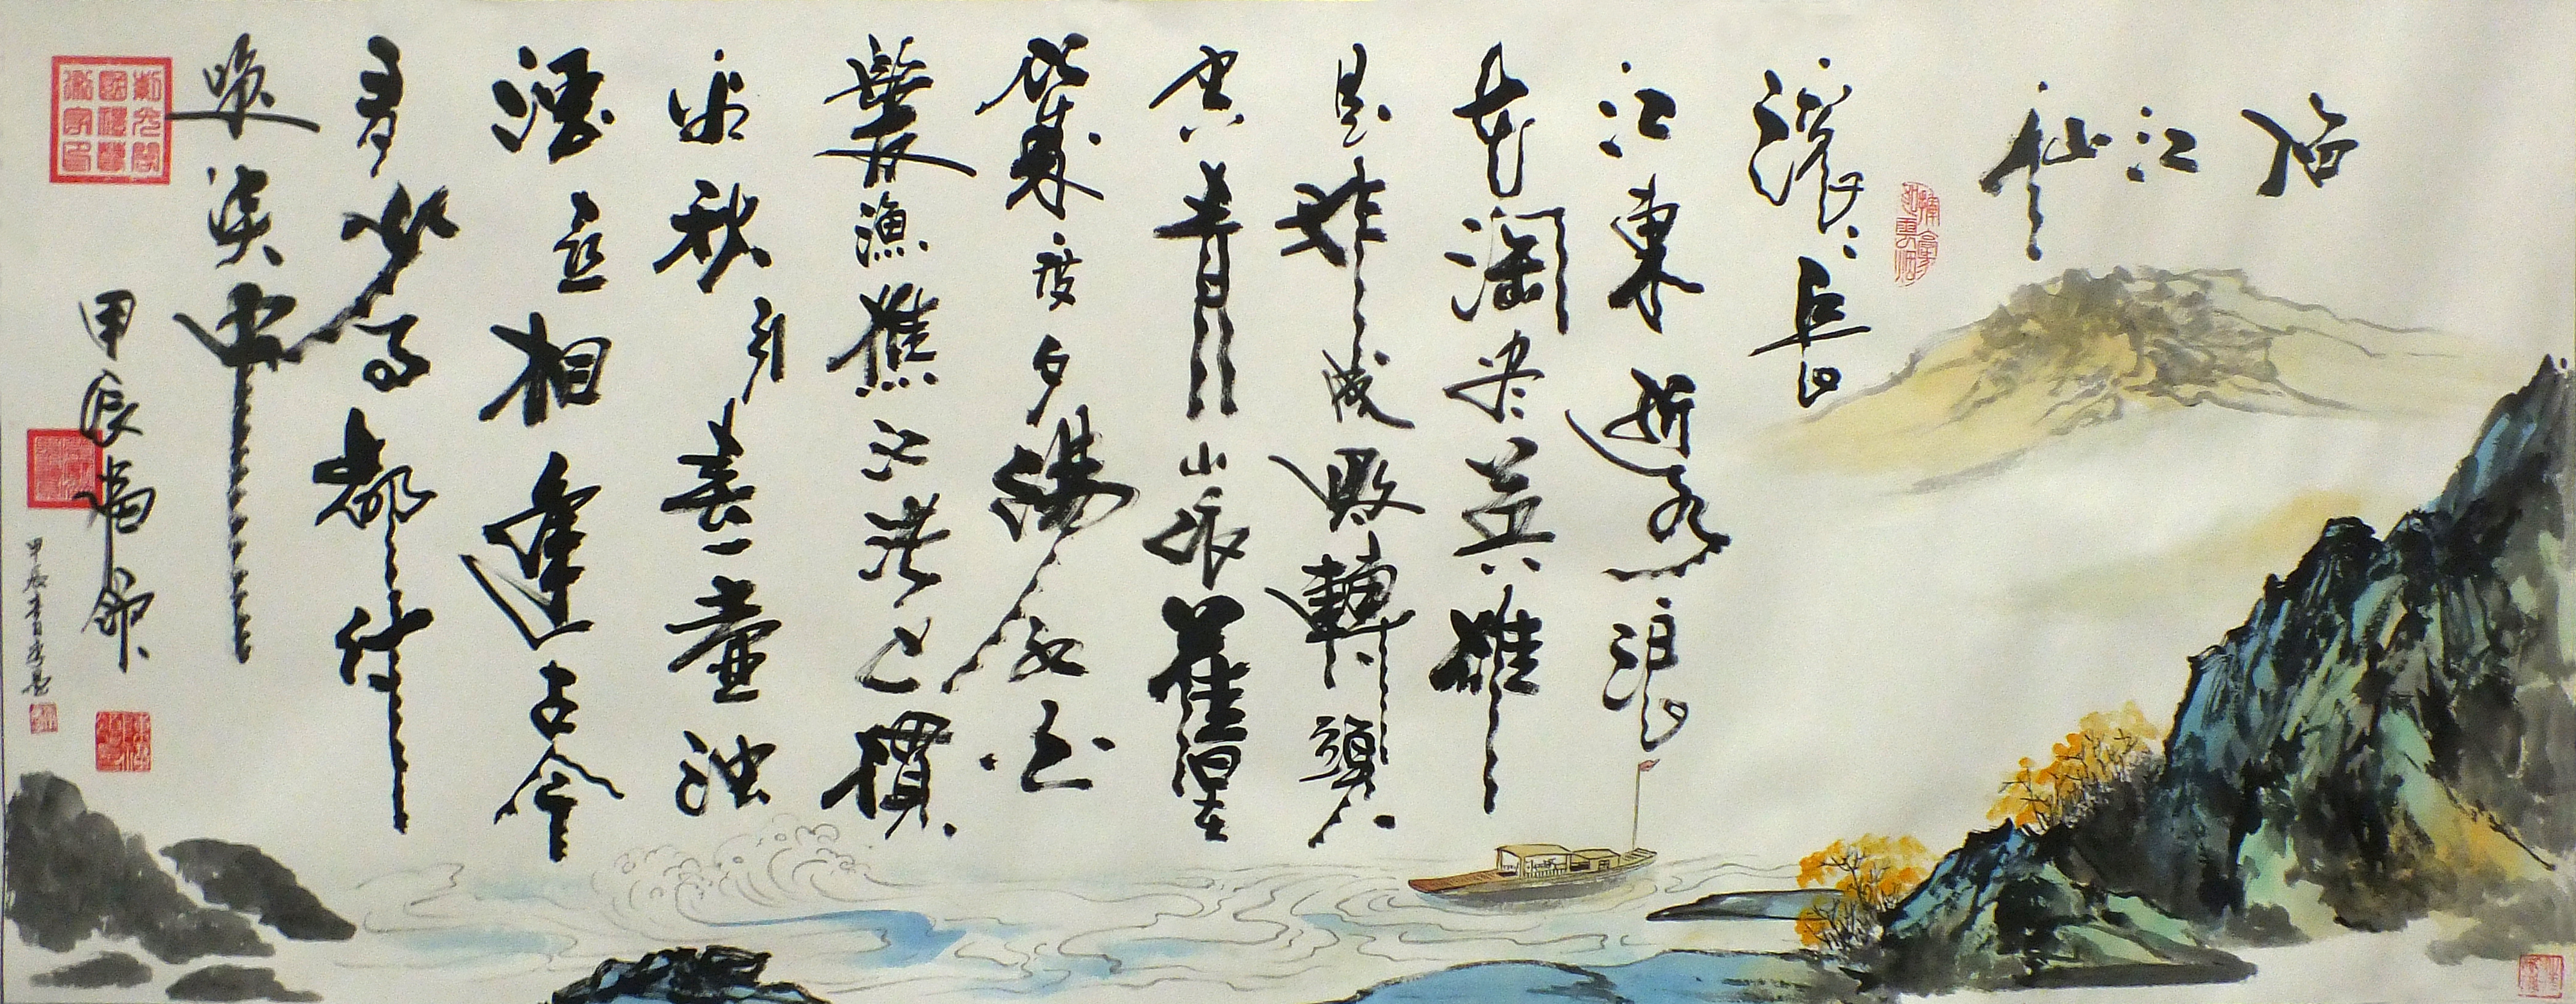 临江仙
滚滚長
江東逝水浪
花淘尽英雄
是非成敗轉頭
空青山依舊在
幾度夕陽紅白
髮漁樵江渚上慣
看秋月春一壺浊
酒喜相逢古今
多少事都付
笑談中
甲辰端節
甲辰